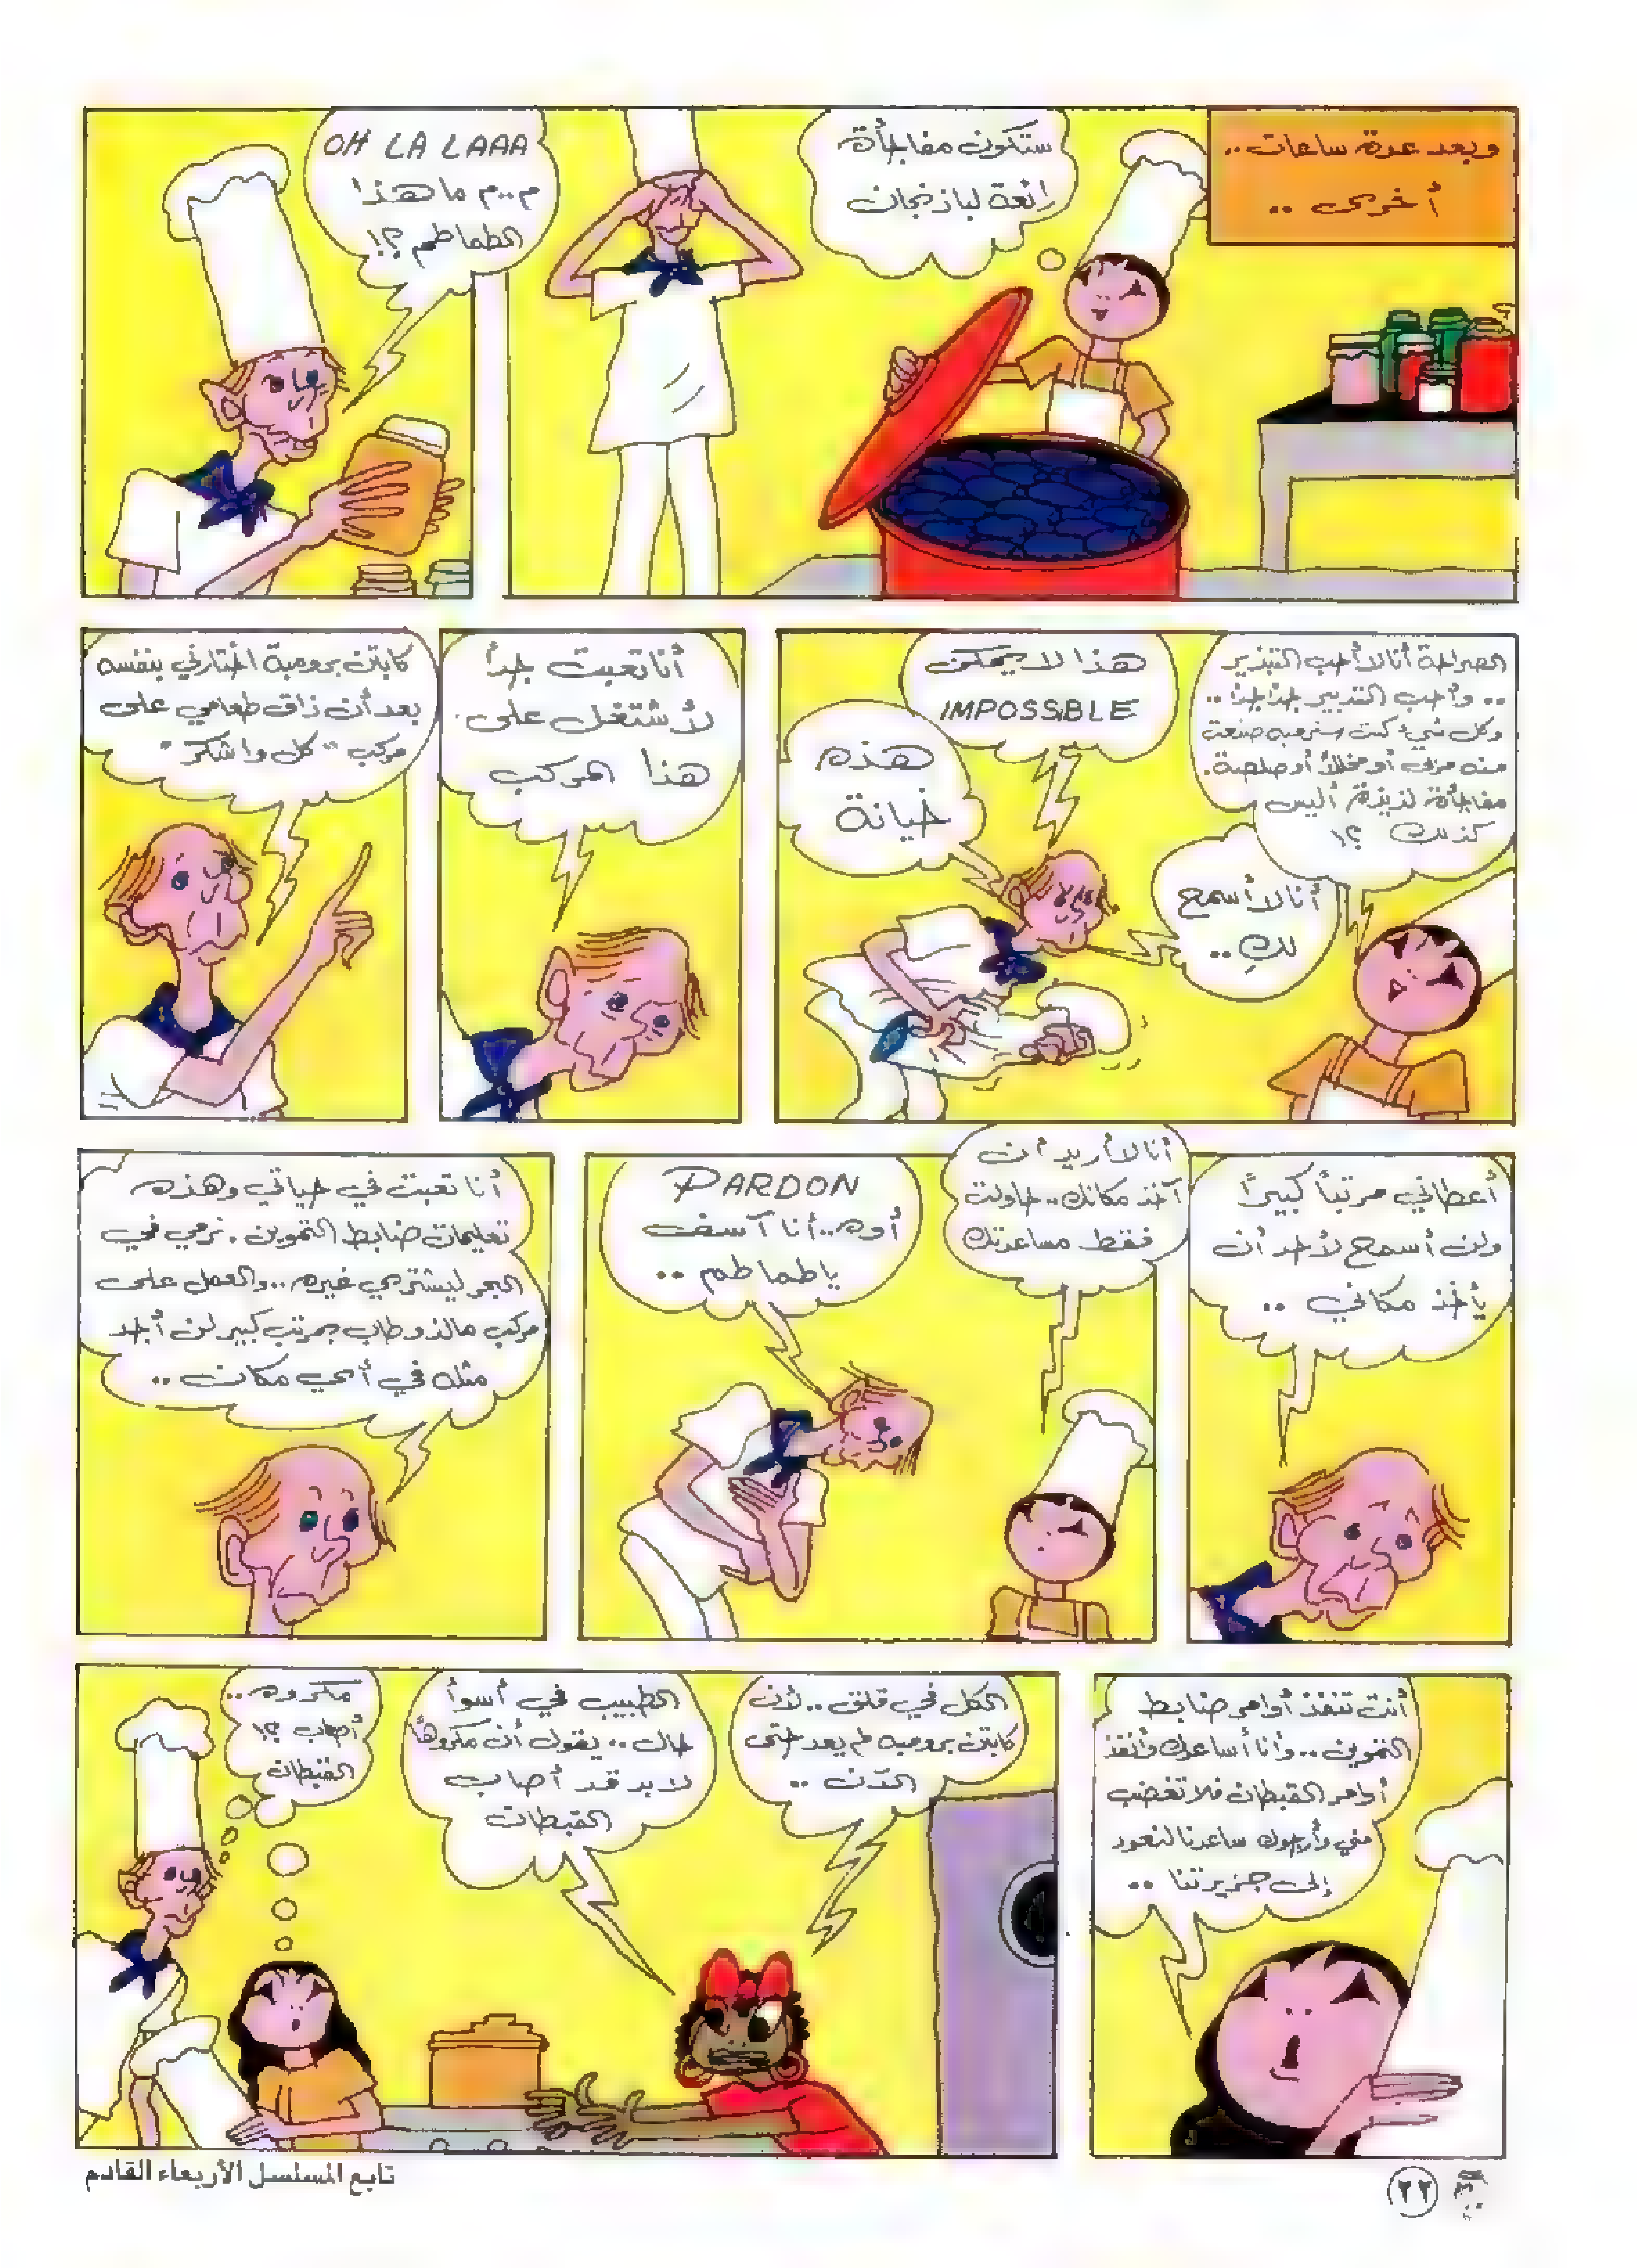 وبعد عدة ساعات..
أخرى ..
ستكون مفاجأة
رائعة لباذنجان
OH LA LAAA
م..م ما هذا
الطماطم؟!
الصراحة أنا لا أحب التبذير
.. وأحب التدبير جداً جداً ..
وكل شيء كنت سترميه صنعت
منه مربى أو مخللاً أو صلصة.
مفاجأة لذيذة أليس
كذلك ؟!
هذا لا يمكن
IMPOSSIBLE
هذه
خيانة
أنا لا أسمح
لكِ..
أنا تعبت جداً
لأشتغل على
هذا المركب
كابتن برومبة اختارني بنفسه
بعد أن ذاق طعامي على
مركب "كل واشكر"
أعطاني مرتباً كبيراً
ولن أسمح لأحد أن
يأخذ مكاني ..
أنا لا أريد أن
آخذ مكانك.. حاولت
فقط مساعدتك
PARDON
أوه..أنا آسف
يا طماطم ..
أنا تعبت في حياتي وهذه
تعليمات ضابط التموين. نرمي في
البحر ليشتري غيره.. والعمل على
مركب مالذ وطاب بمرتب كبير لن أجد
مثله في أي مكان ..
أنت تنفذ أوامر ضابط
التموين.. وأنا أساعدك وأنفذ
أوامر القبطان فلا تغضب
مني وأرجوك ساعدنا لنعود
إلى جزيرتنا ..
الكل في قلق .. لأن
كابتن برومبه لم يعد حتى
الآن ..
الطبيب في أسوأ
حال .. يقول أن مكروهاً
لابد قد أصاب
القبطان
مكروه ..
أصاب ؟!
القبطان
تابع المسلسل الأربعاء القادم
٢٢